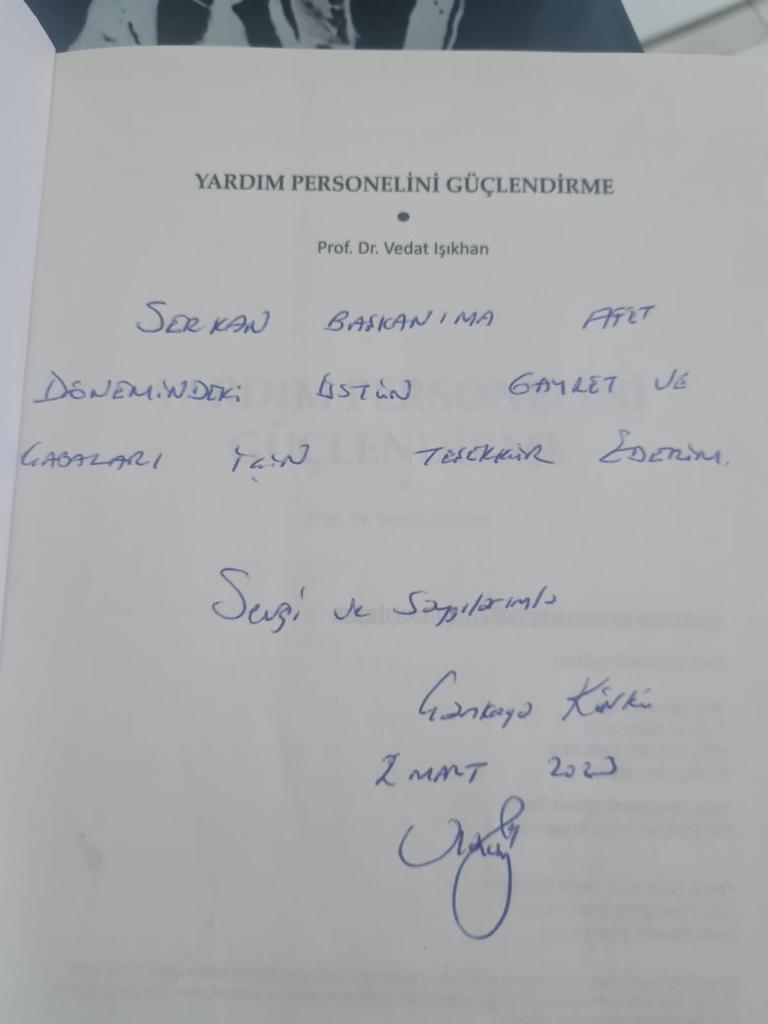 YARDIM PERSONELİNİ GÜÇLENDİRME
Prof. Dr. Vedat Işıkhan
SERKAN BAŞKANIMA AFET
DÖNEMİNDEKİ ÜSTÜN GAYRET VE
ÇABALARI İÇİN TEŞEKKÜR EDERİM.
Sevgi ve Saygılarımla
Çankaya Köşkü
2 MART 2023